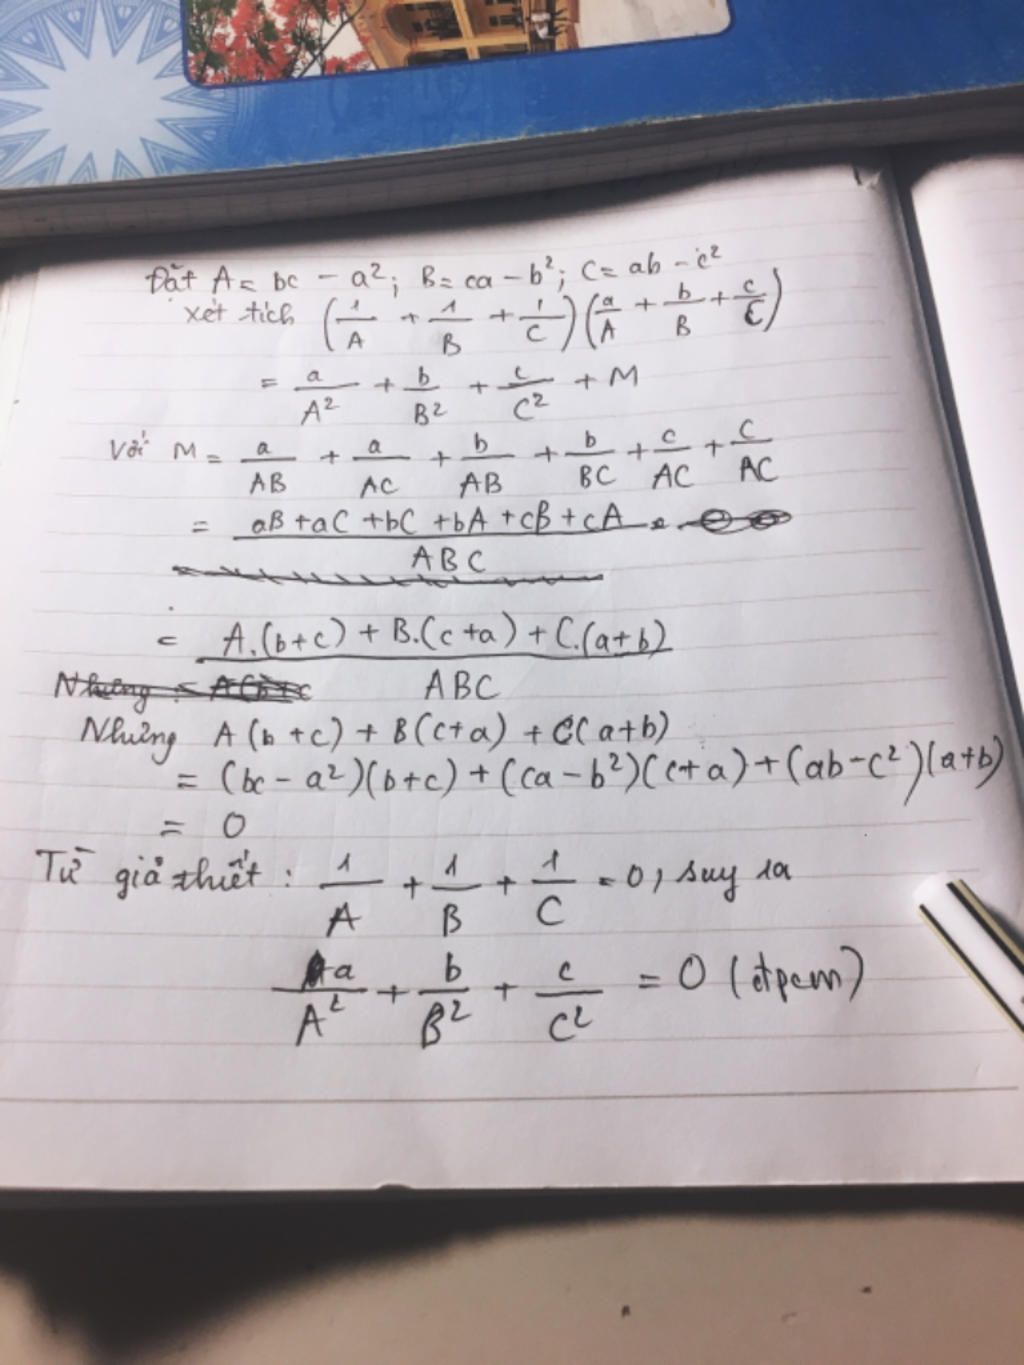 Đặt A = bc - a²; B = ca - b²; C = ab - c²
xét tích (1/A + 1/B + 1/C)(a/A + b/B + c/C)
= a/A² + b/B² + c/C² + M
Với M = a/AB + a/AC + b/AB + b/BC + c/AC + c/AC
= (aB + aC + bC + bA + cB + cA)/ABC
= (A.(b+c) + B.(c+a) + C.(a+b))/ABC
Nhưng A(b+c) + B(c+a) + C(a+b)
= (bc - a²)(b+c) + (ca - b²)(c+a) + (ab - c²)(a+b)
= 0
Từ giả thiết : 1/A + 1/B + 1/C = 0, suy ra
a/A² + b/B² + c/C² = 0 (đpcm)